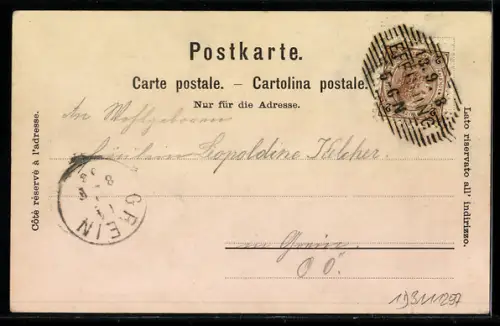 Postkarte.
Carte postale. – Cartolina postale.
Nur für die Adresse.
An Wohlgeboren
Fräulein Leopoldine Kelcher
in Grein
O Ö.
Côté réservé à l'adresse.
Lato riservato all' indirizzo.
GREIN